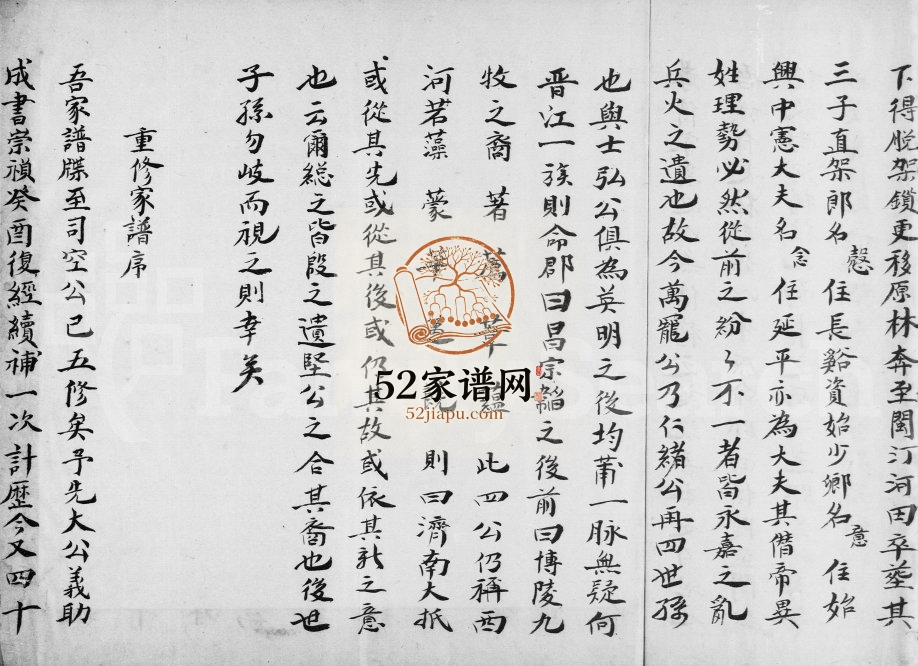 下得脱架鎖更移原林奔至閩汀河田卒塟其
三子直架郎名愨住長谿資始少卿名意住始
興中憲大夫名念住延平亦為大夫其僭帝異
姓理勢必然從前之紛々不一者皆永嘉之亂
兵火之遺也故今萬罷公乃仁緒公再四世孫
也與士弘公俱為英明之後均莆一脉無疑何
晋江一族則命郡曰昌宗韜之後前曰博陵九
牧之裔著 蘊此四公仍稱西
河若藻蒙 則曰濟南大抵
或從其先或從其後或仍其故或依其新之意
也云爾総之皆殷之遺堅公之合其裔也後世
子孫勿歧而視之則幸矣
重修家譜序
吾家譜牒至司空公已五修矣予先大公義助
成書崇禎癸酉復經續補一次計歷今又四十
52家谱网
52jiapu.com